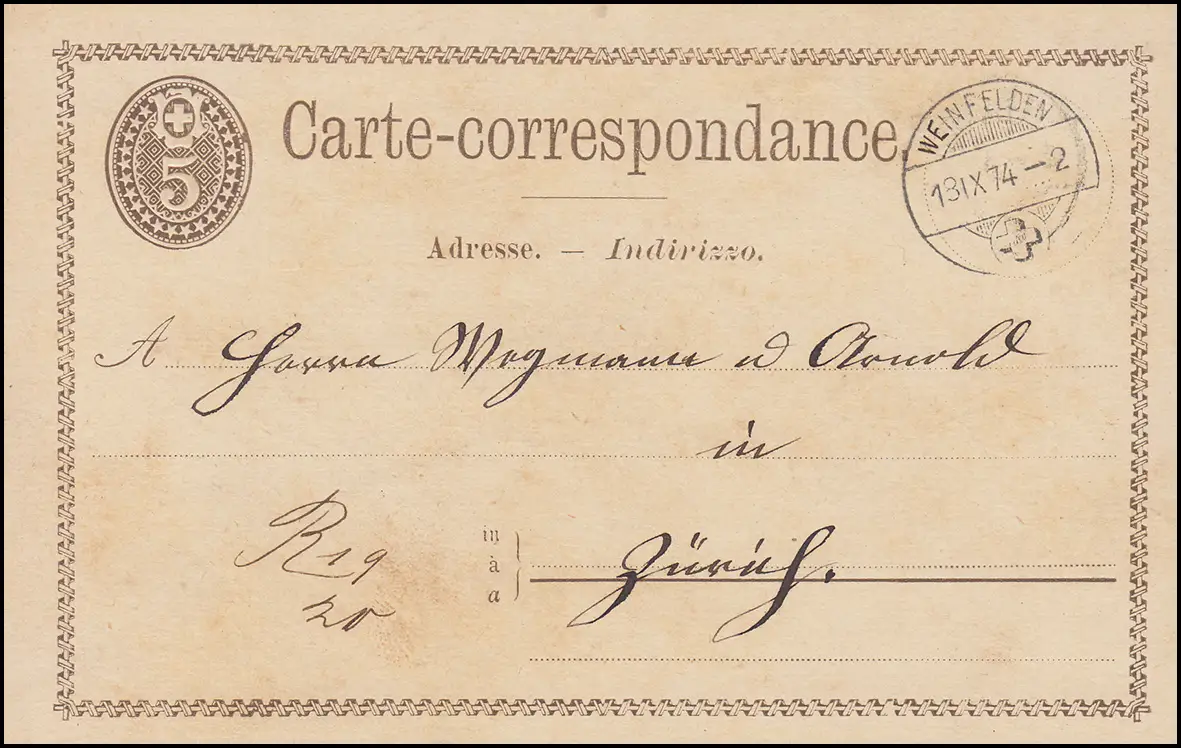 5
Carte-correspondance.
WEINFELDEN
18 IX 74 — 2
Adresse. — Indirizzo.
A Herrn Wegmann u Arnold
in
in
à
a
Zürich.